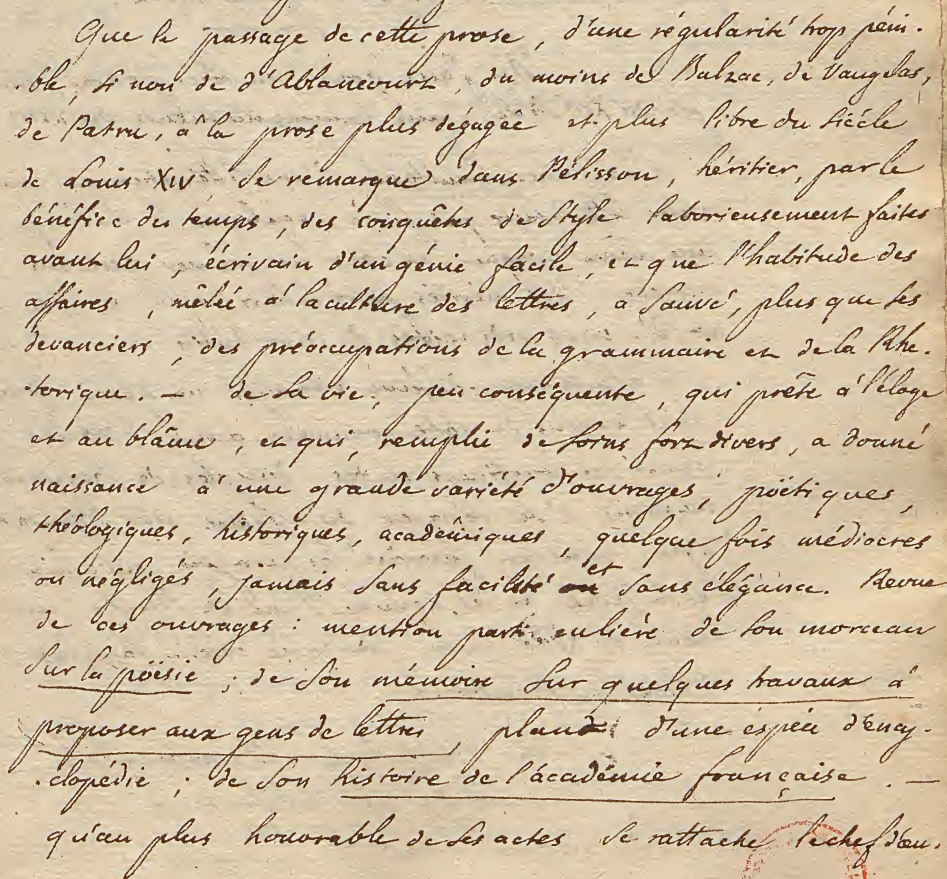 Que le passage de cette prose, d'une régularité trop péni-
-ble, si non de d'Ablancourt, du moins de Balzac, de Vaugelas,
de Patru, à la prose plus dégagée et plus libre du siécle
de Louis XIV se remarque dans Pélisson, héritier, par le
bénéfice du temps, des conquêtes de style laborieusement faites
avant lui, écrivain d'un génie facile, et que l'habitude des
affaires, mêlée à la culture des lettres, a sauvé, plus que ses
devanciers, des préoccupations de la grammaire et de la Rhe-
-torique. — de sa vie, peu conséquente, qui prête à l'éloge
et au blâme, et qui, remplie de soins fort divers, a donné
naissance à une grande variété d'ouvrages, poëtiques,
théologiques, historiques, académiques, quelque fois médiocres
ou négligés, jamais sans facilité et sans élégance. Revue
de ces ouvrages : mention particulière de son morceau
sur la poësie ; de son mémoire sur quelques travaux à
proposer aux gens de lettres, plan d'une espèce d'ency-
-clopédie ; de son histoire de l'académie française. —
qu'au plus honorable de ses actes se rattache le chef d'œu-